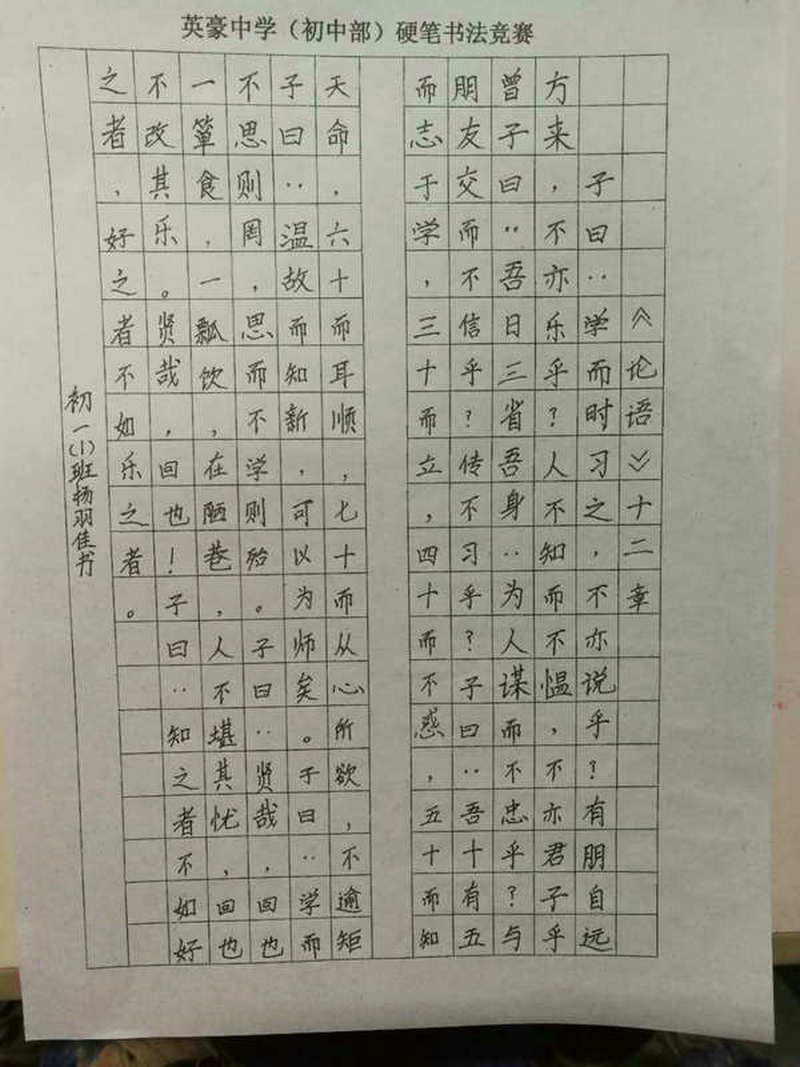 英豪中学（初中部）硬笔书法竞赛
《论语》十二章
子曰：学而时习之，不亦说乎？有朋自远
方来，不亦乐乎？人不知而不愠，不亦君子乎
曾子曰：吾日三省吾身：为人谋而不忠乎？与
朋友交而不信乎？传不习乎？子曰：吾十有五
而志于学，三十而立，四十而不惑，五十而知
天命，六十而耳顺，七十而从心所欲，不逾矩
子曰：温故而知新，可以为师矣。子曰：学而
不思则罔，思而不学则殆。子曰：贤哉，回也
一箪食，一瓢饮，在陋巷，人不堪其忧，回也
不改其乐。贤哉，回也！子曰：知之者不如好
之者，好之者不如乐之者。
初一(1)班杨羽佳书